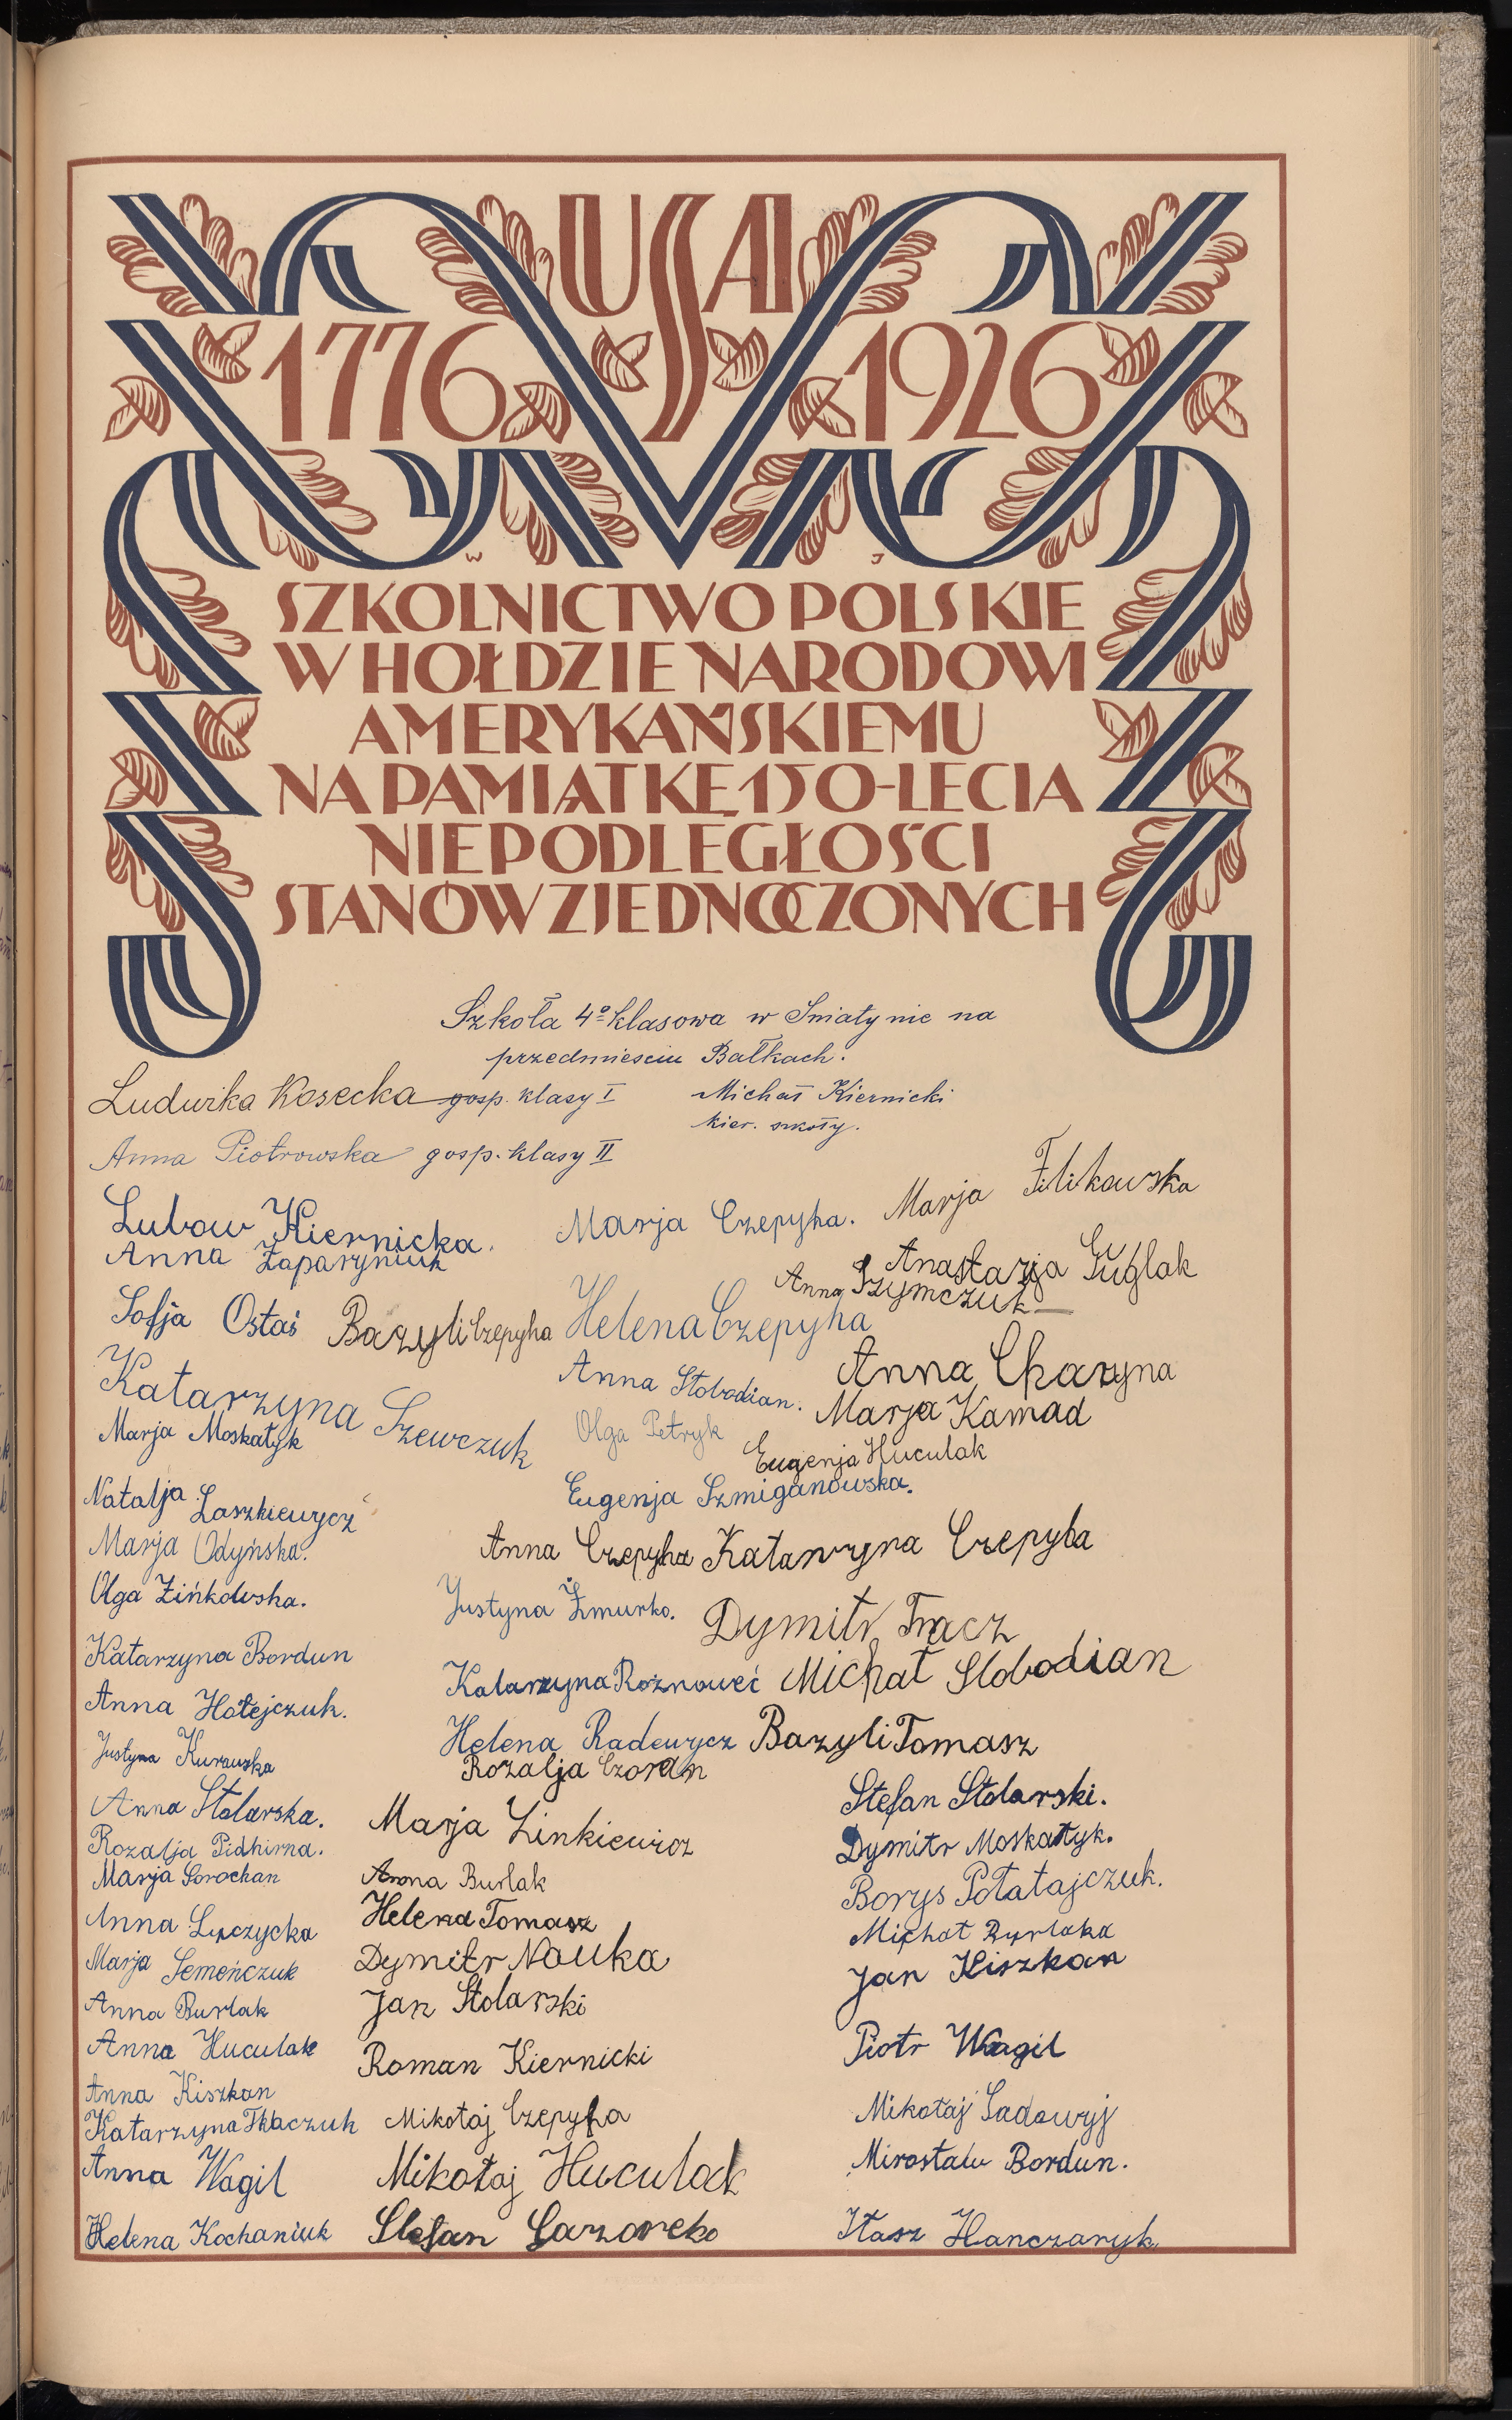 USA
1776 1926
W J
SZKOLNICTWO POLSKIE
W HOŁDZIE NARODOWI
AMERYKAŃSKIEMU
NA PAMIĄTKĘ 150-LECIA
NIEPODLEGŁOŚCI
STANÓW ZJEDNOCZONYCH
Szkoła 4º klasowa w Śniatynie na
przedmieściu Bałkach.
Ludwika Kosecka gosp. klasy I
Michał Kiernicki
kier. szkoły.
Anna Piotrowska gosp. klasy II
Lubow Kiernicka.
Marja Czepyha.
Marja Filikowska
Anna Zaparyniuk
Anastazja Guglak
Anna Szymczuk
Sofja Ostaś
Bazyli Czepyha
Helena Czepyha
Katarzyna Szewczuk
Anna Słobodian.
Anna Charyna
Marja Moskałyk
Olga Petryk
Marja Kamad
Eugenja Huculak
Natalja Laszkiewycz
Eugenja Szmiganowska.
Marja Odyńska.
Anna Czepyha
Katarzyna Czepyha
Olga Zińkowska.
Justyna Żmurko.
Dymitr Tracz
Katarzyna Bordun
Katarzyna Rożnoweć
Michał Slobodian
Anna Hołejczuk.
Helena Radewycz
Bazyli Tomasz
Justyna Kurawska
Rozalja Czoran
Anna Stolarska.
Marja Zinkiewicz
Stefan Stolarski.
Rozalja Pidhirna.
Dymitr Moskałyk.
Marja Sorochan
Anna Burlak
Borys Potatajczuk.
Anna Łuczycka
Helena Tomasz
Michał Burlaka
Marja Semeńczuk
Dymitr Nauka
Jan Kiszkan
Anna Burlak
Jan Stolarski
Anna Huculak
Roman Kiernicki
Piotr Wagil
Anna Kiszkan
Katarzyna Tkaczuk
Mikołaj Czepyha
Mikołaj Sadowyj
Anna Wagil
Mikołaj Huculak
Mirosław Bordun.
Helena Kochaniuk
Stefan
Iłasz Hanczaryk